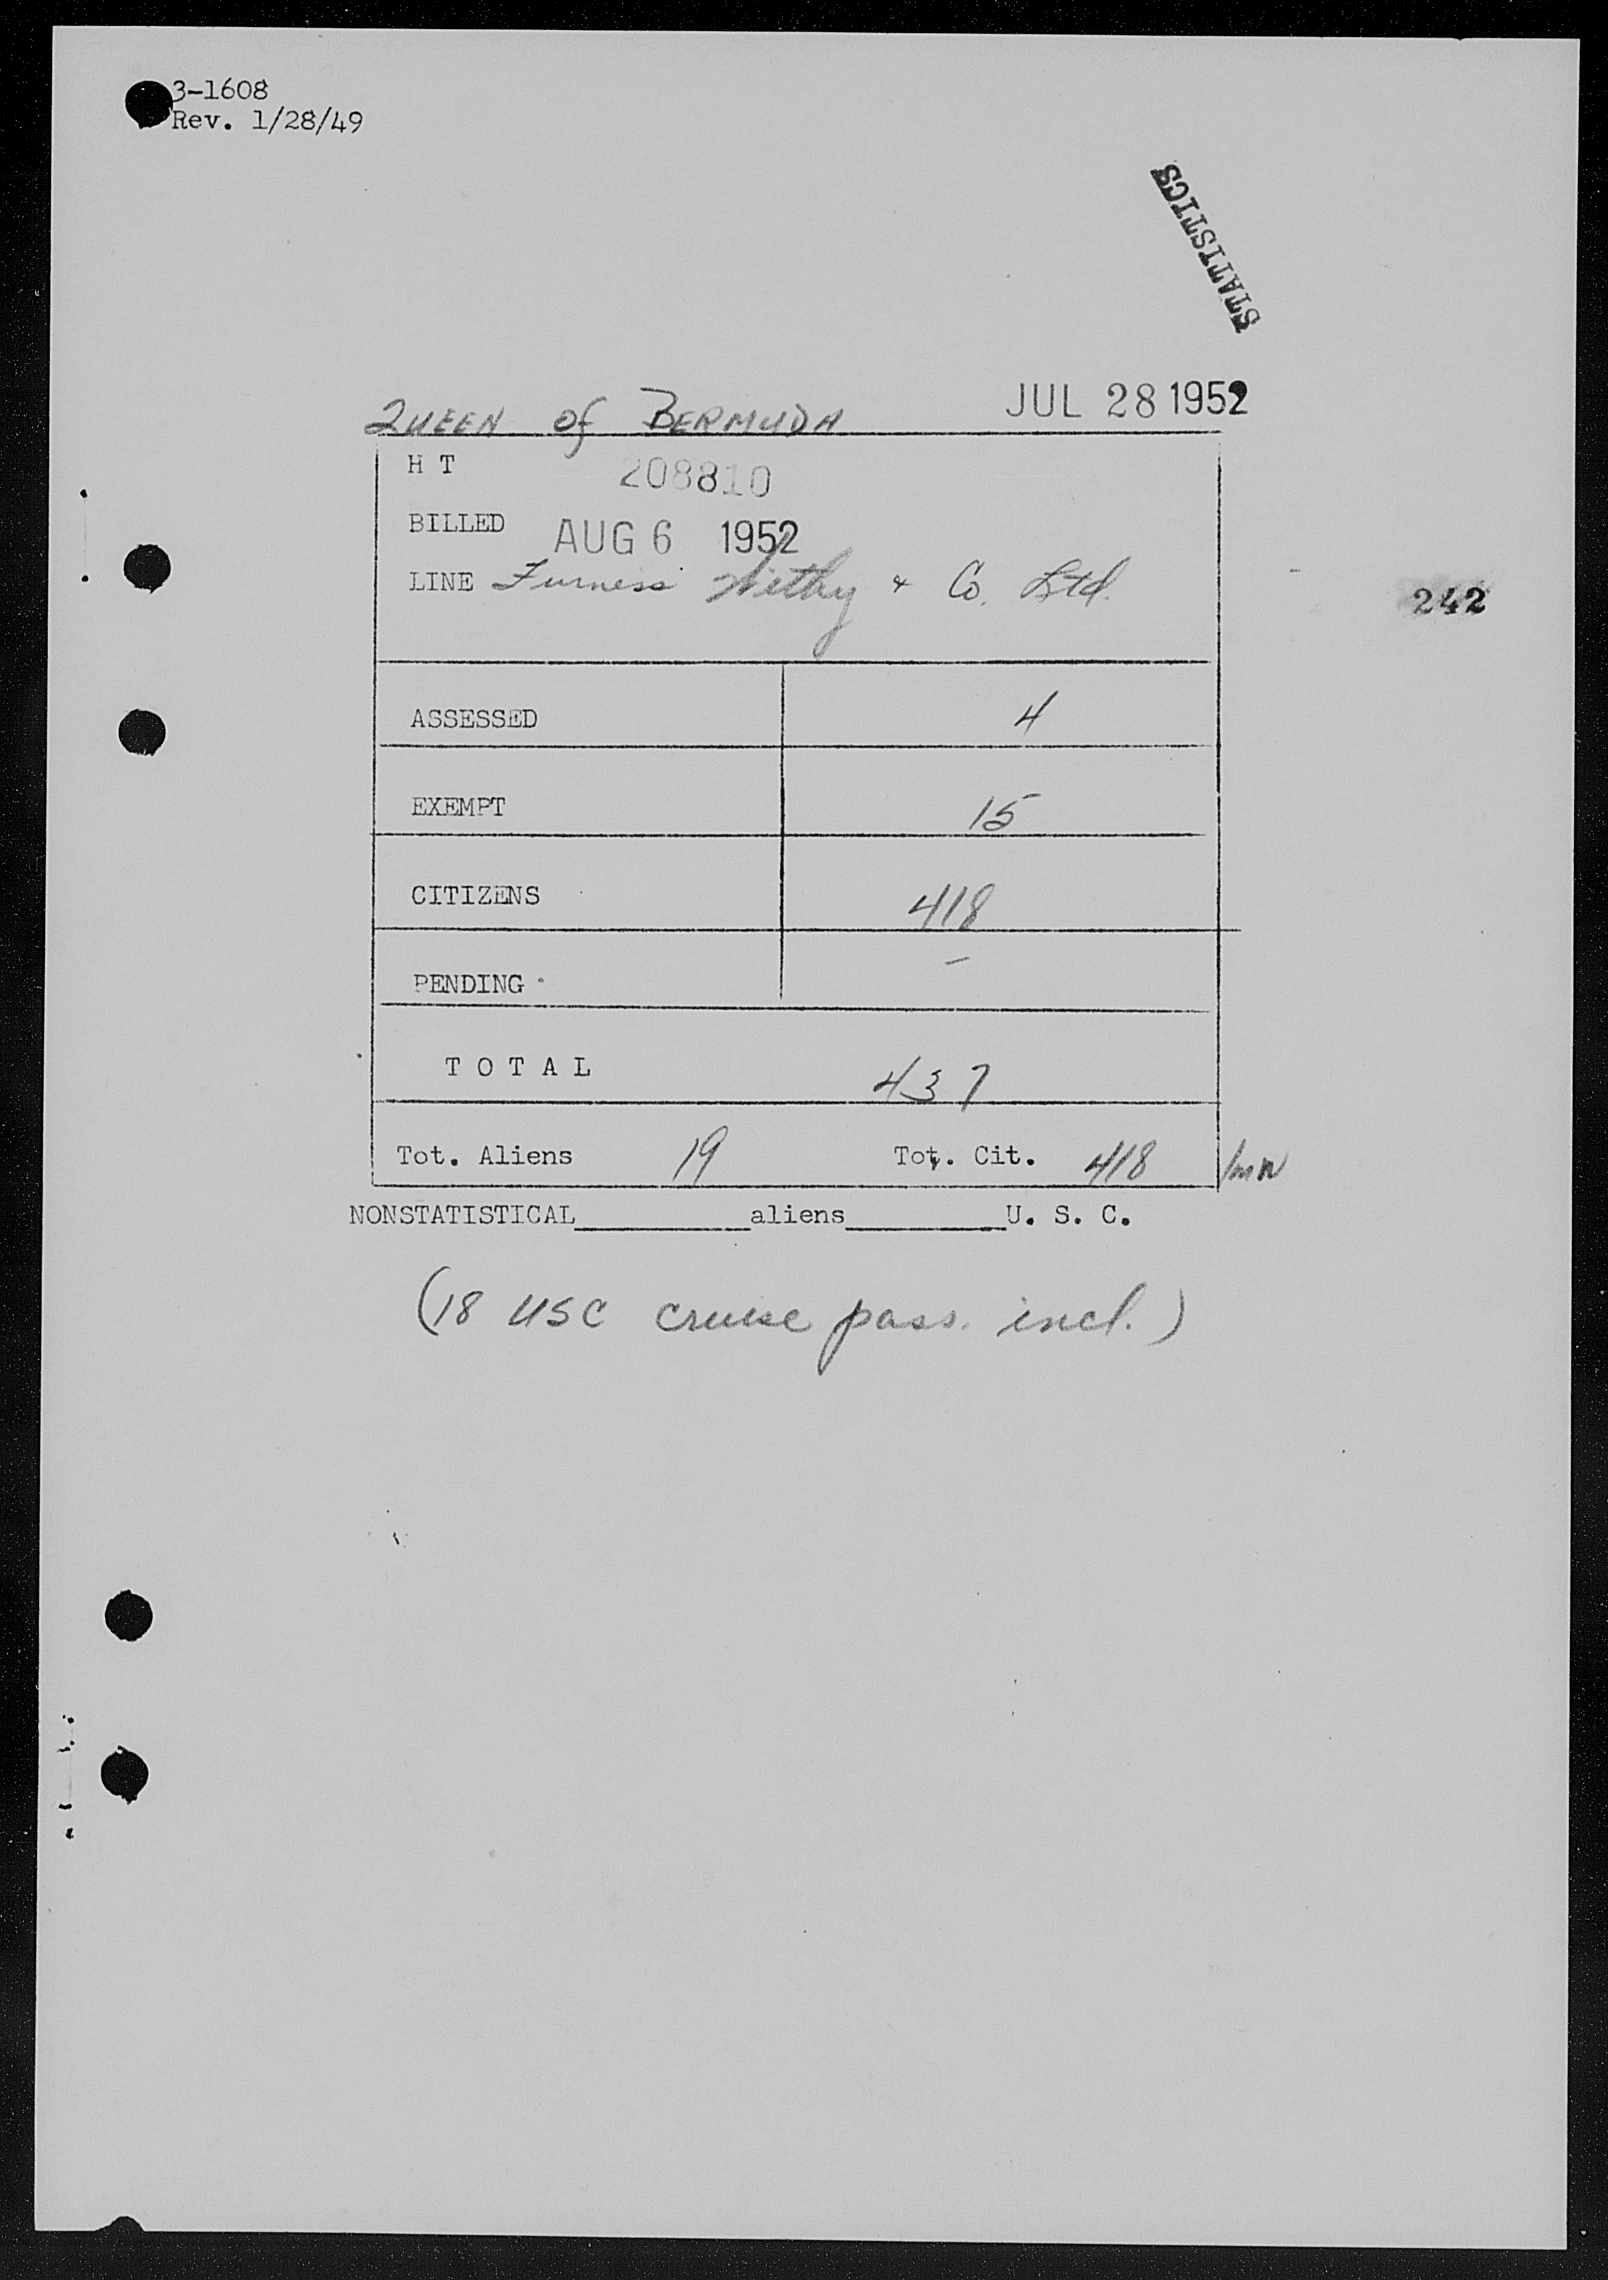 3-1608
Rev. 1/28/49
STATISTICS
QUEEN of BERMUDA JUL 28 1952
H T 208810
BILLED AUG 6 1952
LINE Furness Withy & Co. Ltd.
242
ASSESSED 4
EXEMPT 15
CITIZENS 418
PENDING -
T O T A L 437
Tot. Aliens 19 Tot. Cit. 418
NONSTATISTICAL__________aliens__________U. S. C.
(18 USC cruise pass. incl.)